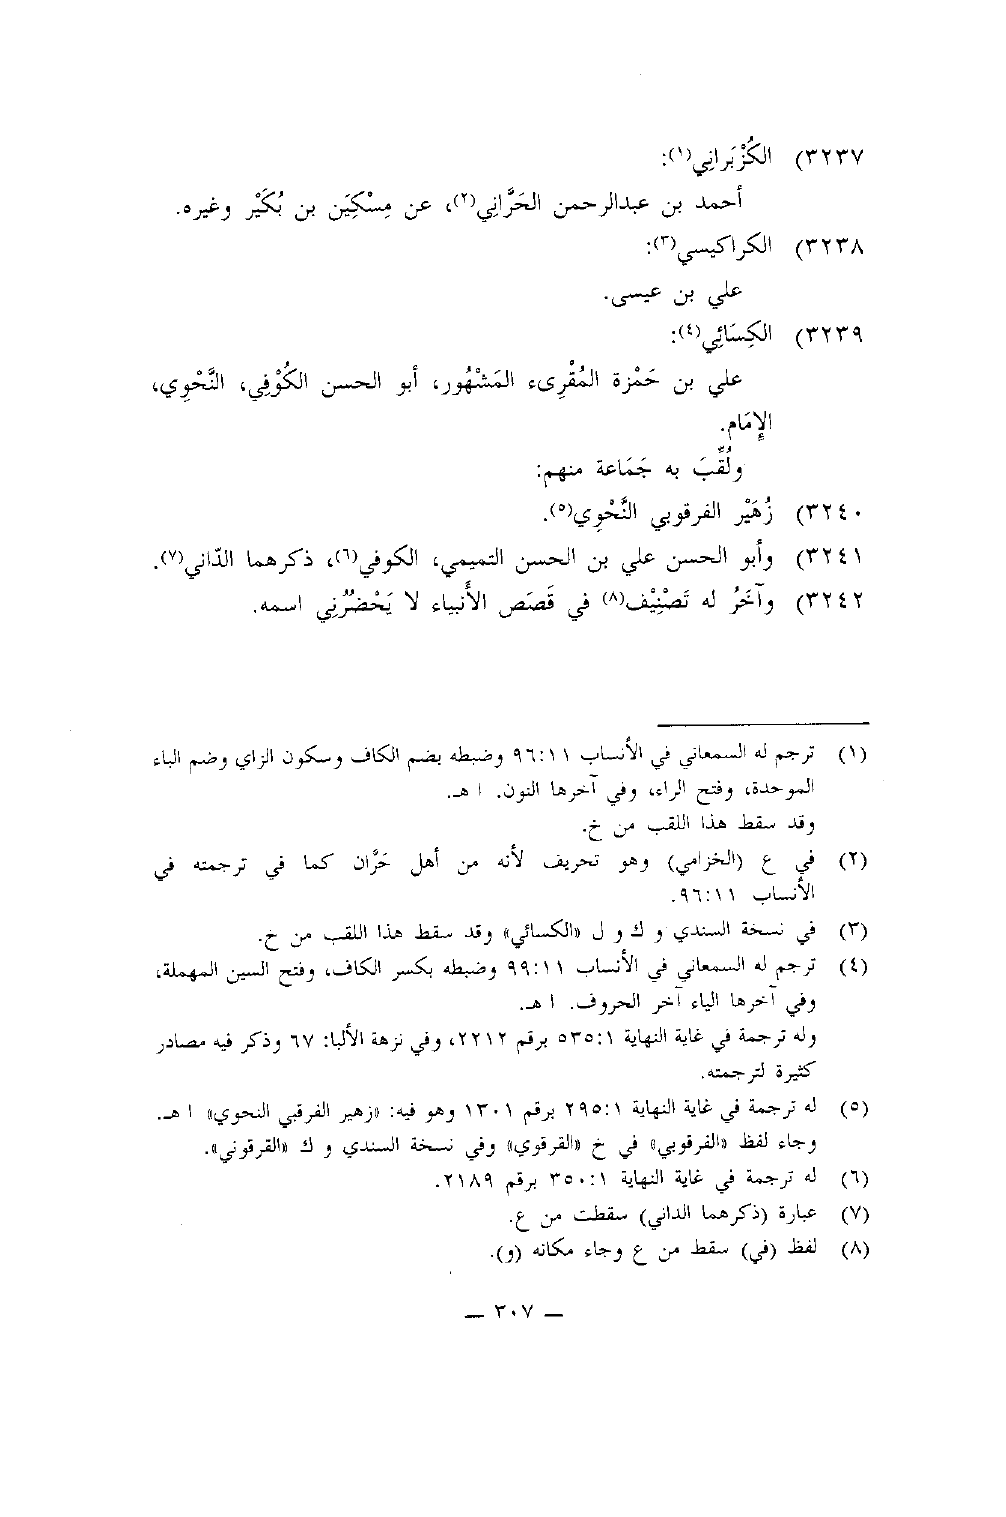 ٣٢٣٧) الكُزْبَرانِي(١):
أحمد بن عبدالرحمن الحَرَّانِي(٢)، عن مِسْكِيَن بن بُكَيْر وغيره.
٣٢٣٨) الكراكيسي(٣):
علي بن عيسى.
٣٢٣٩) الكِسَائِي(٤):
علي بن حَمْزة المُقْرِىء المَشْهُور، أبو الحسن الكُوْفِي، النَّحْوِي،
الإِمَام.
ولُقِّبَ به جَمَاعة منهم:
٣٢٤٠) زُهَيْر الفرقوبي النَّحْوِي(٥).
٣٢٤١) وأبو الحسن علي بن الحسن التميمي، الكوفي(٦)، ذكرهما الدّاني(٧).
٣٢٤٢) وآخَرُ له تَصْنِيْف(٨) في قَصَص الأَنبياء لا يَحْضُرُنِي اسمه.
(١) ترجم له السمعاني في الأنساب ٩٦:١١ وضبطه بضم الكاف وسكون الزاي وضم الباء
الموحدة، وفتح الراء، وفي آخرها النون. ا هـ.
وقد سقط هذا اللقب من خ.
(٢) في ع (الخزامي) وهو تحريف لأنه من أهل حَرَّان كما في ترجمته في
الأنساب ٩٦:١١.
(٣) في نسخة السندي و ك و ل «الكسائي» وقد سقط هذا اللقب من خ.
(٤) ترجم له السمعاني في الأنساب ٩٩:١١ وضبطه بكسر الكاف، وفتح السين المهملة،
وفي آخرها الياء آخر الحروف. ا هـ.
وله ترجمة في غاية النهاية ٥٣٥:١ برقم ٢٢١٢، وفي نزهة الألبا: ٦٧ وذكر فيه مصادر
كثيرة لترجمته.
(٥) له ترجمة في غاية النهاية ٢٩٥:١ برقم ١٣٠١ وهو فيه: «زهير الفرقبي النحوي» ا هـ.
وجاء لفظ «الفرقوبي» في خ «القرقوي» وفي نسخة السندي و ك «القرقوني».
(٦) له ترجمة في غاية النهاية ٣٥٠:١ برقم ٢١٨٩.
(٧) عبارة (ذكرهما الداني) سقطت من ع.
(٨) لفظ (في) سقط من ع وجاء مكانه (و).
— ٣٠٧ —